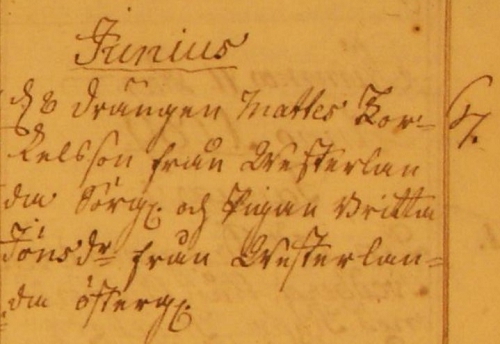 Junius
d 8 drängen Mattes Kor-
kelsson från Westerlan
da Sörg: och Pigan Britta
Jönsdr från Westerlan=
da österg: